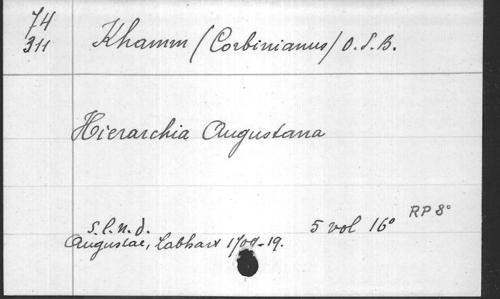 74
311
Khamm (Corbinianus) O.S.B.
Hierarchia Augustana
s.l.n.d.
Augustae, Labhart 1709-19.
5 vol 16°
RP 8°